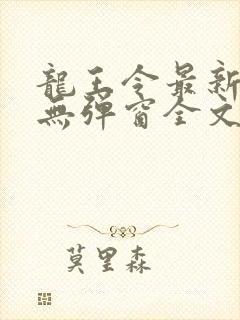 龍王令最新
無彈窗全文
莫里森